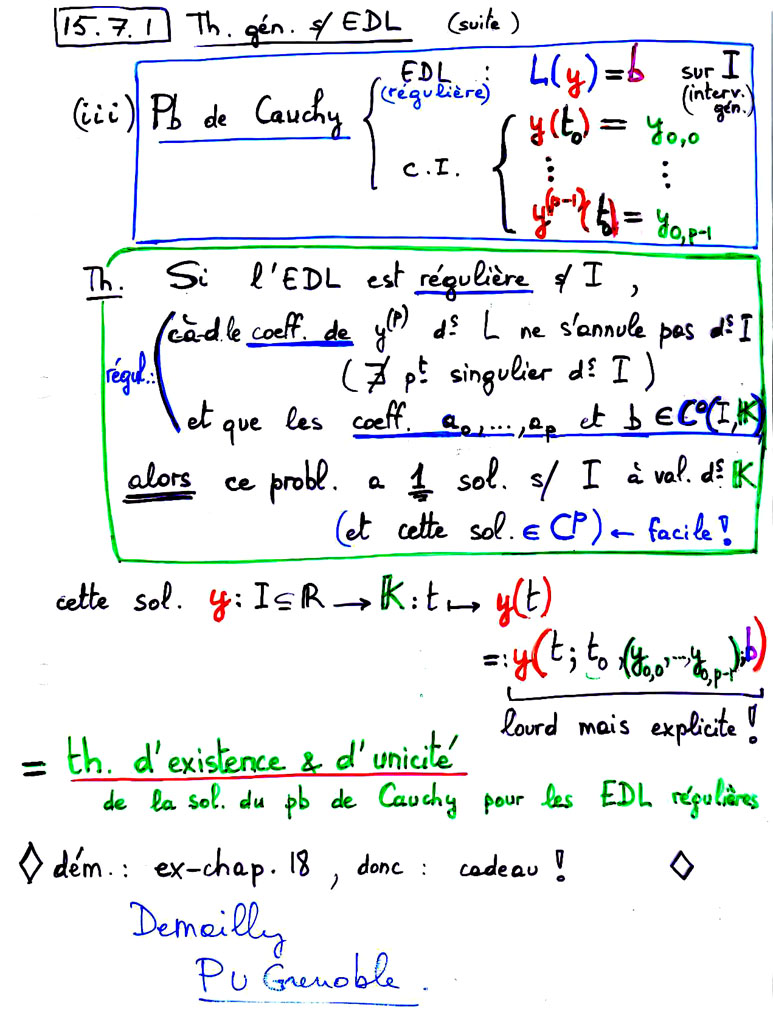 15.7.1 Th. gén. s/ EDL (suite)
(iii) Pb de Cauchy { EDL (régulière) : L(y) = b sur I (interv. gén.)
c.I. { y(t₀) = y₀,₀
⋮ ⋮
y⁽ᵖ⁻¹⁾(t₀) = y₀,ₚ₋₁
Th. Si l'EDL est régulière s/ I,
régul.: ( càd. le coeff. de y⁽ᵖ⁾ dˢ L ne s'annule pas dˢ I
(∄ pᵗ singulier dˢ I)
et que les coeff. a₀,...,aₚ et b ∈ C⁰(I, 𝕂)
alors ce probl. a 1 sol. s/ I à val. dˢ 𝕂
(et cette sol. ∈ Cᵖ) ← facile !
cette sol. y : I ⊆ ℝ → 𝕂 : t ↦ y(t)
=: y(t ; t₀, (y₀,₀, ..., y₀,ₚ₋₁), b)
lourd mais explicite !
= th. d'existence & d'unicité
de la sol. du pb de Cauchy pour les EDL régulières
◊ dém. : ex-chap. 18, donc : cadeau ! ◊
Demailly
PU Grenoble.